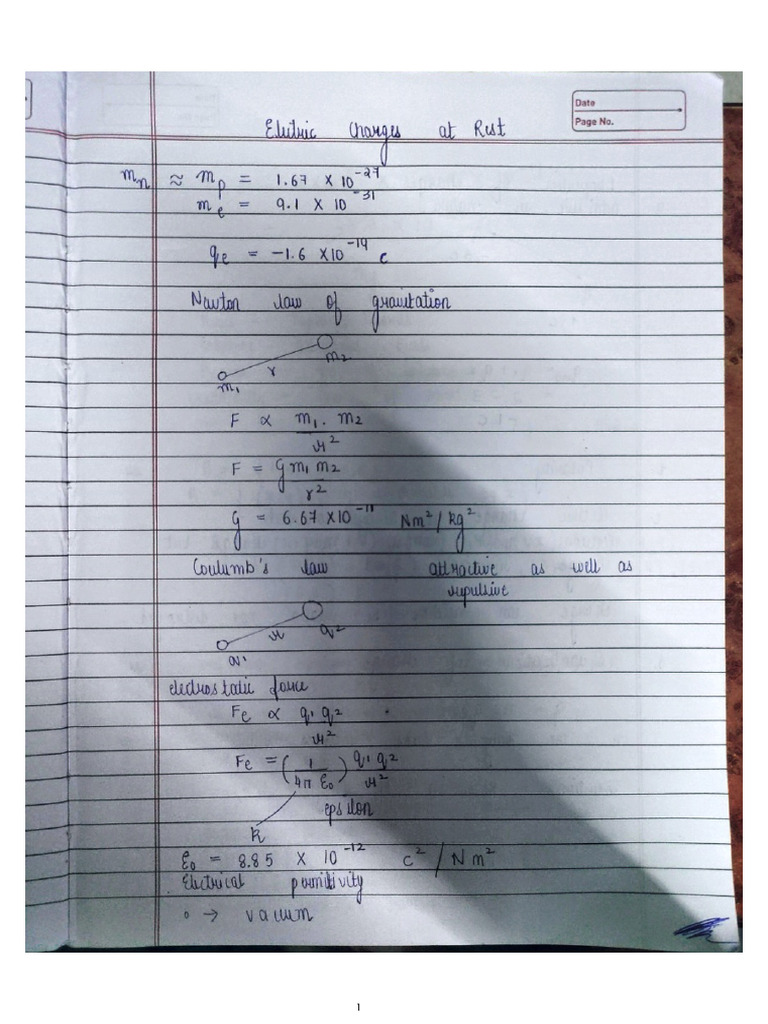 Date
Page No.
Electric Charges at Rest
mn ≈ mp = 1.67 × 10^-27
me = 9.1 × 10^-31
qe = -1.6 × 10^-19 c
Newton law of gravitation
m2
r
m1
F ∝ m1 . m2 / r^2
F = G m1 m2 / r^2
G = 6.67 × 10^-11 Nm^2/kg^2
Coulumb's law attractive as well as
repulsive
r q2
q1
electrostatic force
Fe ∝ q1 q2 / r^2
Fe = (1 / 4π ε0) q1 q2 / r^2
epsilon
k
ε0 = 8.85 × 10^-12 c^2 / Nm^2
Electrical permitivity
o → vacum
1